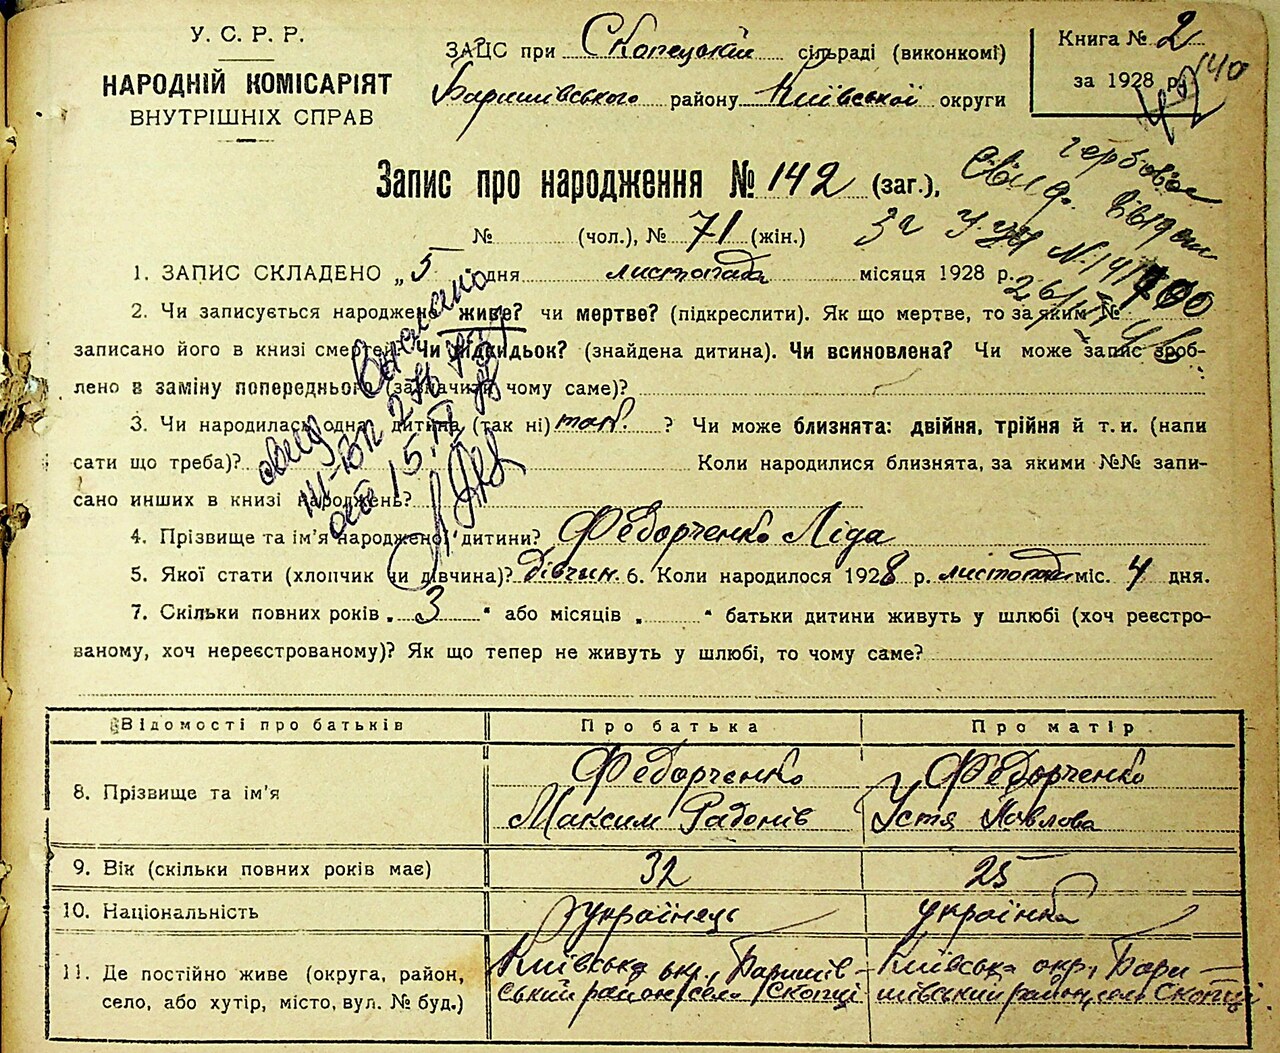 У. С. Р. Р.
НАРОДНІЙ КОМІСАРІЯТ
ВНУТРІШНІХ СПРАВ
ЗАЦС при Скопецькій сільраді (виконкомі)
Баришівського району Київської округи
Книга № 2
за 1928 р.
140
42
Запис про народження № 142 (заг.),
№ (чол.), № 71 (жін.)
гербовое
Свид. выдан
за У УЯ №
1. ЗАПИС СКЛАДЕНО „ 5 " дня листопада місяця 1928 р.
2. Чи записується народжене живе? чи мертве? (підкреслити). Як що мертве, то за яким №
записано його в книзі смертей? Чи підкидьок? (знайдена дитина). Чи всиновлена? Чи може запис зроб-
лено в заміну попереднього (зазначити чому саме)?
3. Чи народилась одна дитина (так ні) так. ? Чи може близнята: двійня, трійня й т. и. (напи
сати що треба)? Коли народилися близнята, за якими №№ запи-
сано инших в книзі народжень?
4. Прізвище та ім'я народженої дитини? Федорченко Ліда
5. Якої стати (хлопчик чи дівчина)? дівчин. 6. Коли народилося 1928 р. листопад міс. 4 дня.
7. Скільки повних років „ 3 " або місяців „ " батьки дитини живуть у шлюбі (хоч реєстро-
ваному, хоч нереєстрованому)? Як що тепер не живуть у шлюбі, то чому саме?
Відомості про батьків Про батька Про матір
8. Прізвище та ім'я Федорченко Максим Радонів Федорченко Устя Павлова
9. Вік (скільки повних років має) 32 25
10. Національність українець українка
11. Де постійно живе (округа, район, село, або хутір, місто, вул. № буд.) Київська окр., Баришівський район, село Скопці Київська окр., Баришівський район, село Скопці